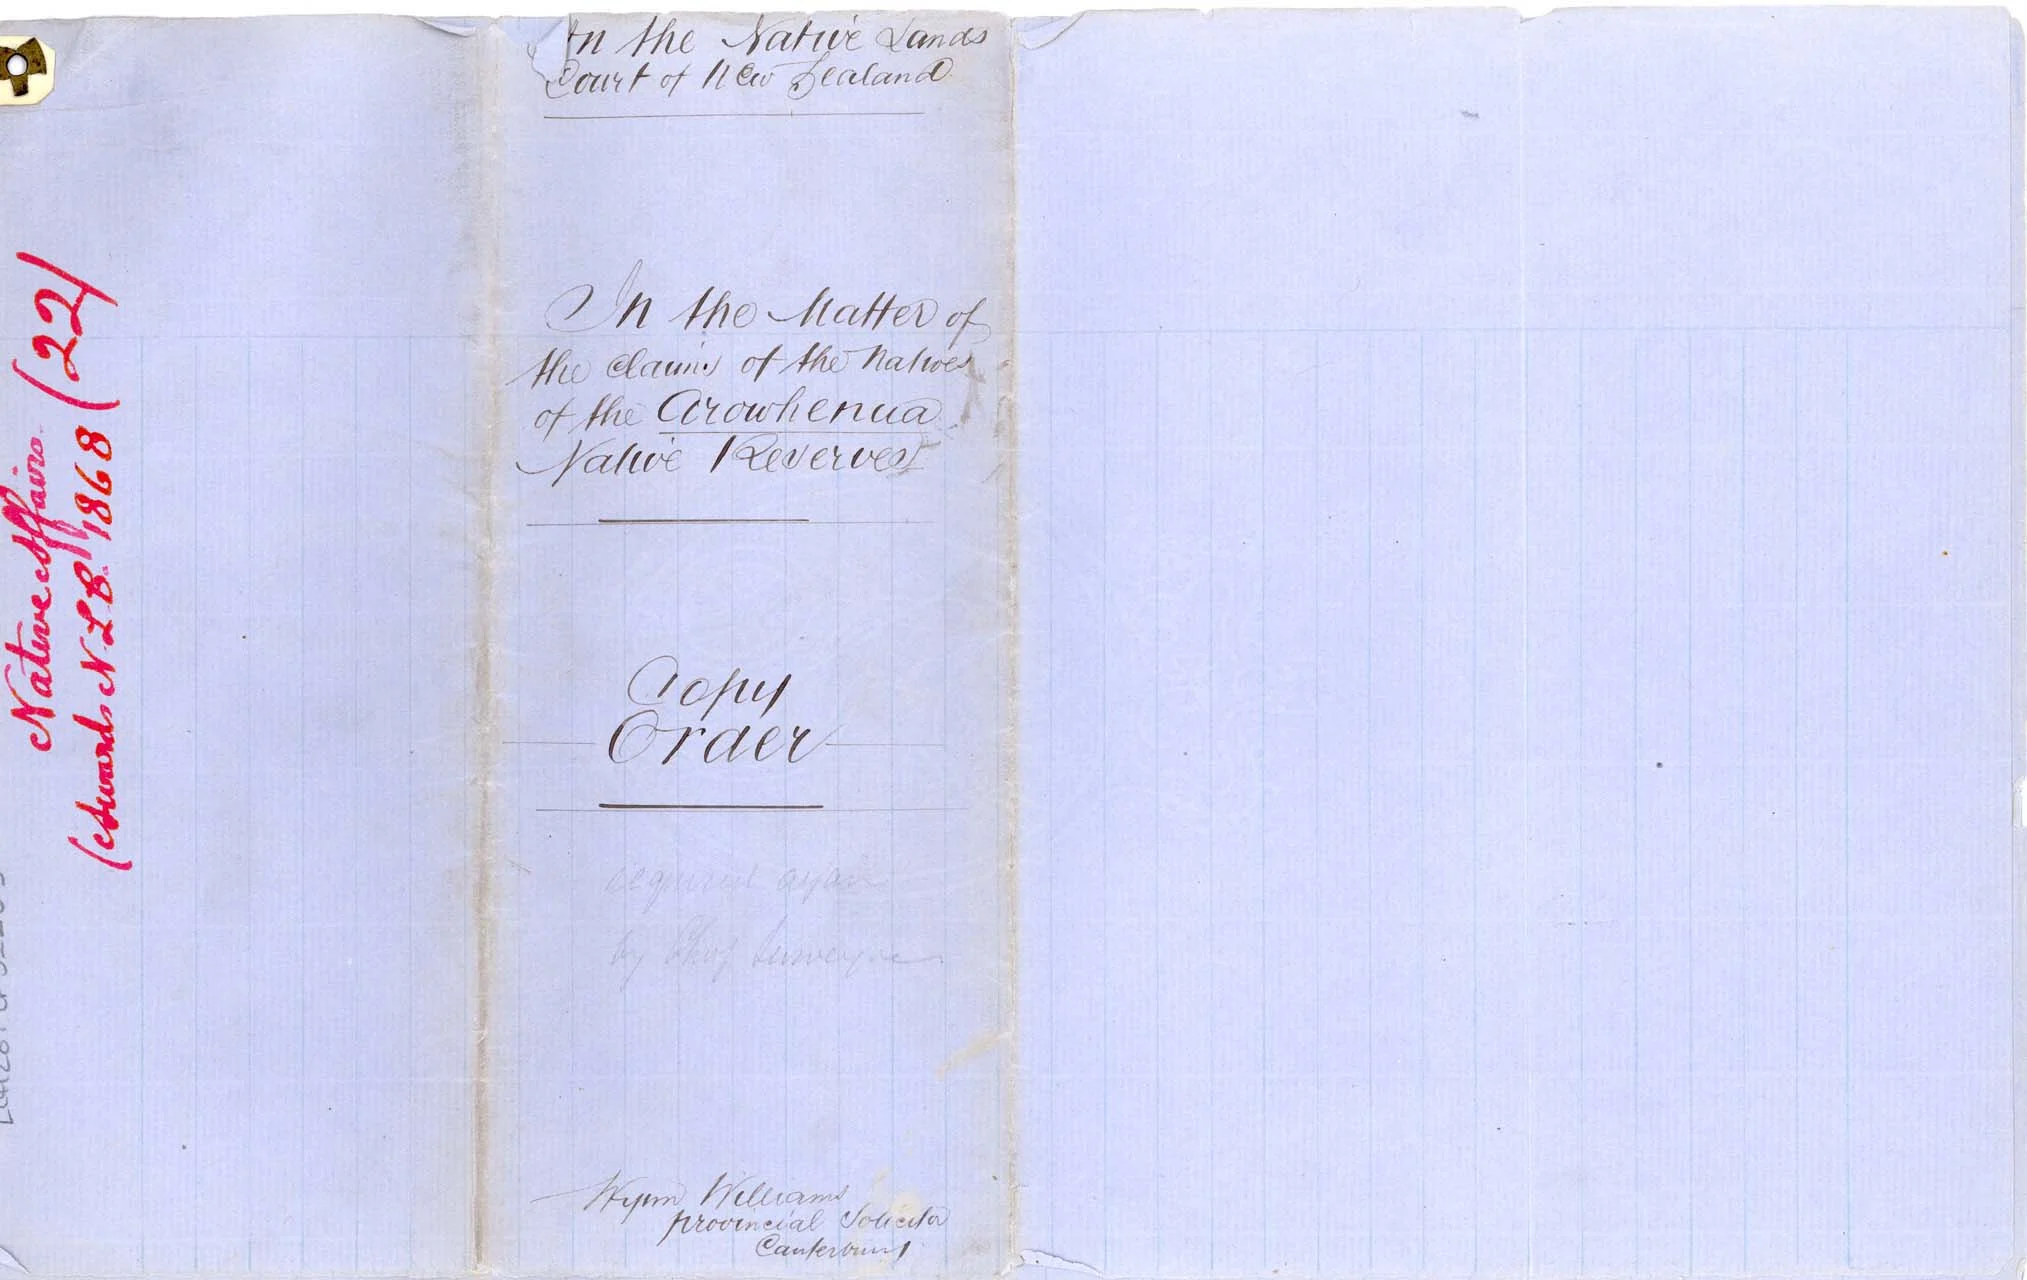 Native Affairs.
(Awards N. L. C. 1868 (22)
In the Native Lands
Court of New Zealand
In the Matter of
the claims of the Natives
of the Arowhenua
Native Reserves
Copy
Order
required again
by Chief Surveyor
Wynn Williams
Provincial Solicitor
Canterbury